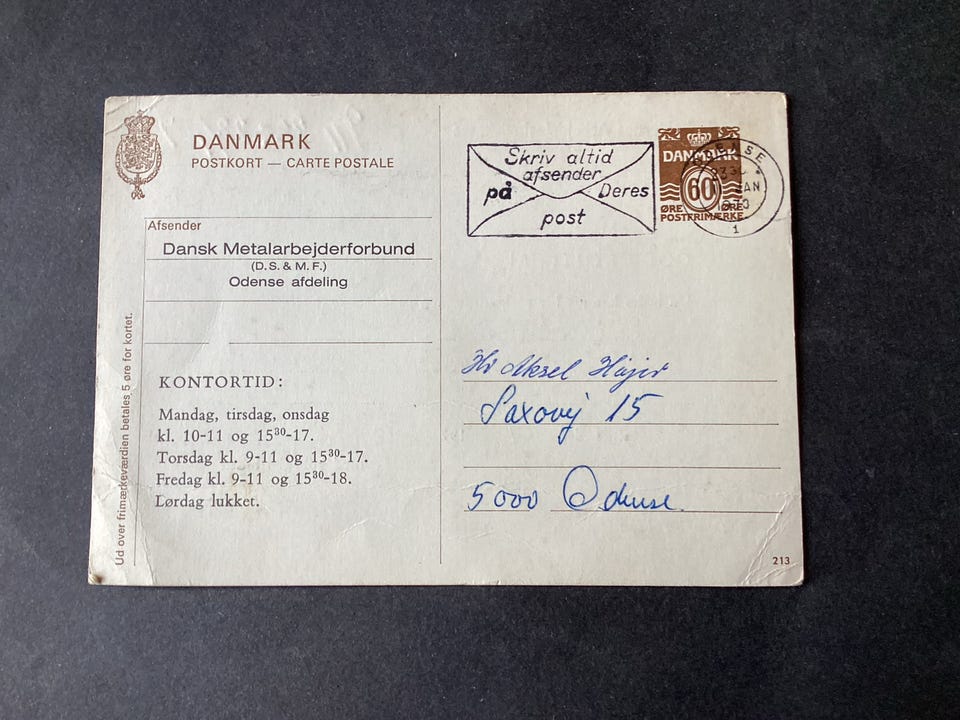 DANMARK
POSTKORT — CARTE POSTALE
Afsender
Dansk Metalarbejderforbund
(D. S. & M. F.)
Odense afdeling
KONTORTID:
Mandag, tirsdag, onsdag
kl. 10-11 og 15³⁰-17.
Torsdag kl. 9-11 og 15³⁰-17.
Fredag kl. 9-11 og 15³⁰-18.
Lørdag lukket.
Ud over frimærkeværdien betales 5 øre for kortet.
Skriv altid
afsender
på Deres
post
DANMARK
60
ØRE ØRE
POSTFRIMÆRKE
1
Hr Aksel Højer
Saxovej 15
5000 Odense.
213